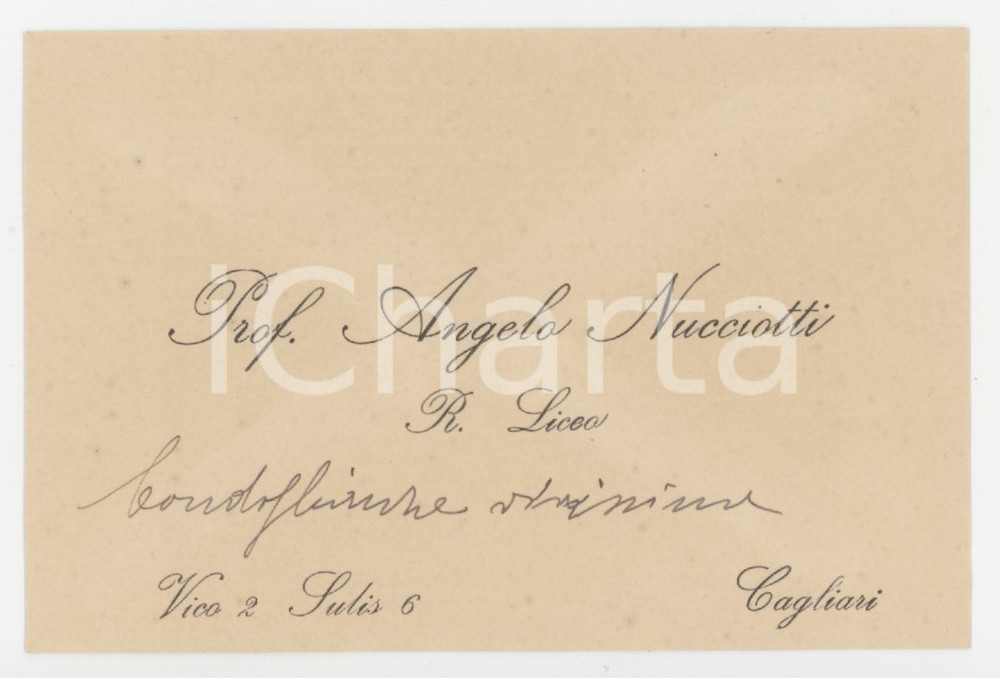 Prof. Angelo Nucciotti
R. Liceo
Condoglianze vivissime
Vico 2 Sulis 6
Cagliari
iCharta